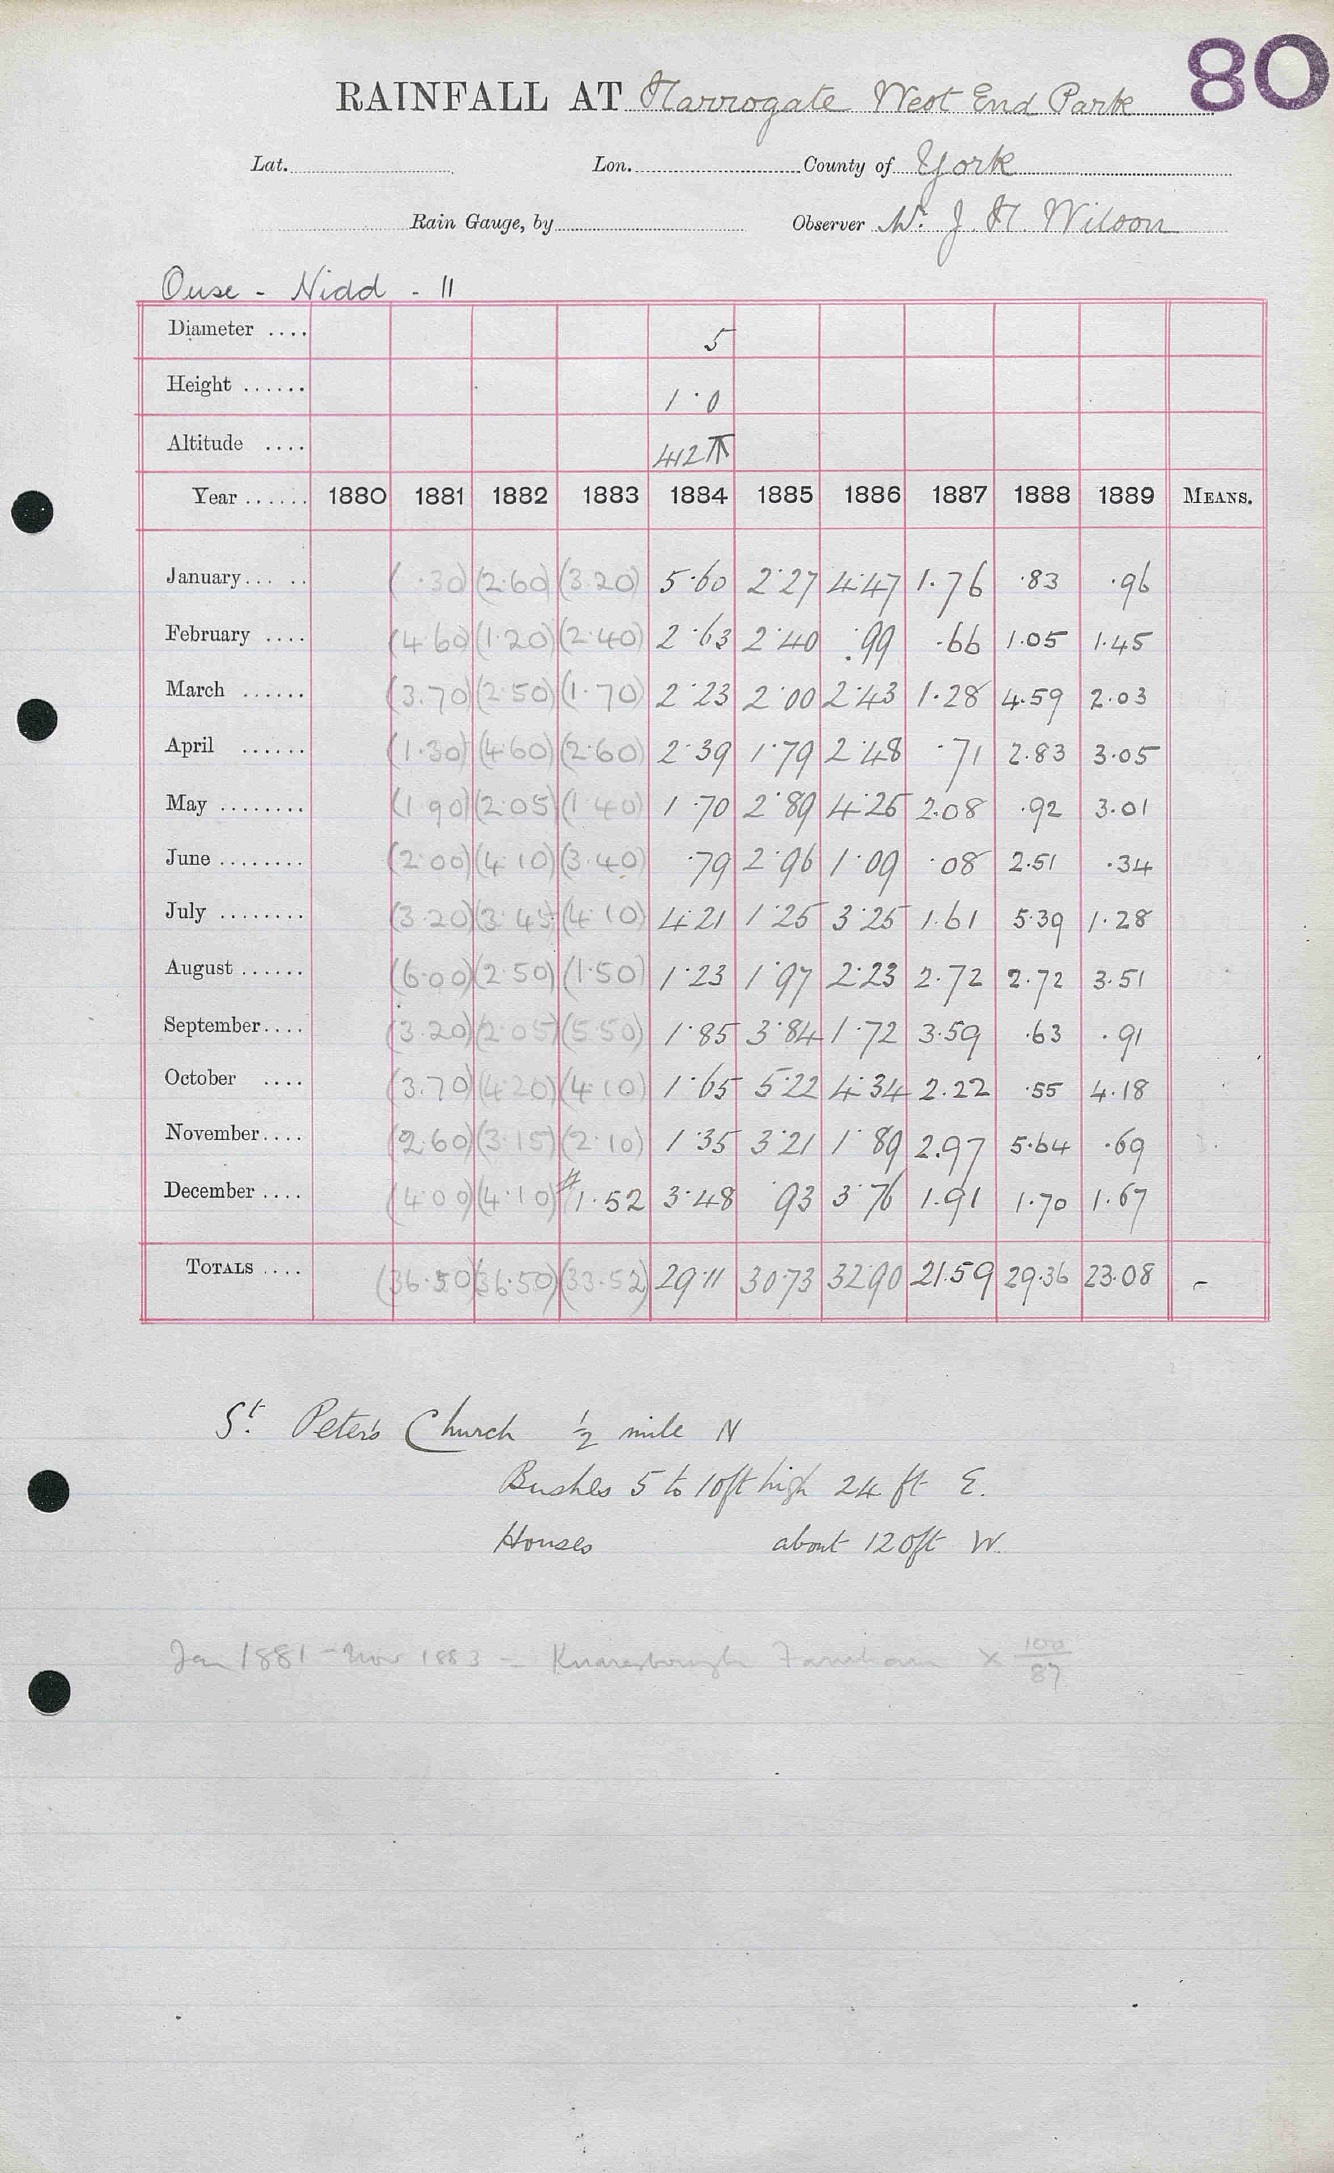 80
RAINFALL AT Harrogate West End Park
Lat. Lon. County of York
Rain Gauge, by Observer Mr. J. H. Wilson
Ouse - Nidd - 11
Diameter .... 5
Height ...... 1·0
Altitude .... 412
Year ...... 1880 1881 1882 1883 1884 1885 1886 1887 1888 1889 MEANS.
January... .. ( ·30) (2·60) (3·20) 5·60 2·27 4·47 1·76 ·83 ·96
February .... (4·60) (1·20) (2·40) 2·63 2·40 ·99 ·66 1·05 1·45
March ...... (3·70) (2·50) (1·70) 2·23 2·00 2·43 1·28 4·59 2·03
April ...... (1·30) (4·60) (2·60) 2·39 1·79 2·48 ·71 2·83 3·05
May ........ (1·90) (2·05) (1·40) 1·70 2·89 4·25 2·08 ·92 3·01
June ........ (2·00) (4·10) (3·40) ·79 2·96 1·09 ·08 2·51 ·34
July ........ (3·20) (3·45) (4·10) 4·21 1·25 3·25 1·61 5·39 1·28
August ...... (6·00) (2·50) (1·50) 1·23 1·97 2·23 2·72 2·72 3·51
September.... (3·20) (2·05) (5·50) 1·85 3·84 1·72 3·59 ·63 ·91
October .... (3·70) (4·20) (4·10) 1·65 5·22 4·34 2·22 ·55 4·18
November.... (2·60) (3·15) (2·10) 1·35 3·21 1·89 2·97 5·64 ·69
December .... (4·00) (4·10) #1·52 3·48 ·93 3·76 1·91 1·70 1·67
TOTALS .... (36·50) (36·50) (33·52) 29·11 30·73 32·90 21·59 29·36 23·08 -
St. Peter's Church ½ mile N
Bushes 5 to 10ft high 24 ft E.
Houses about 120ft W.
Jan 1881 - Nov 1883 - Knaresborough Farnham × 100/87